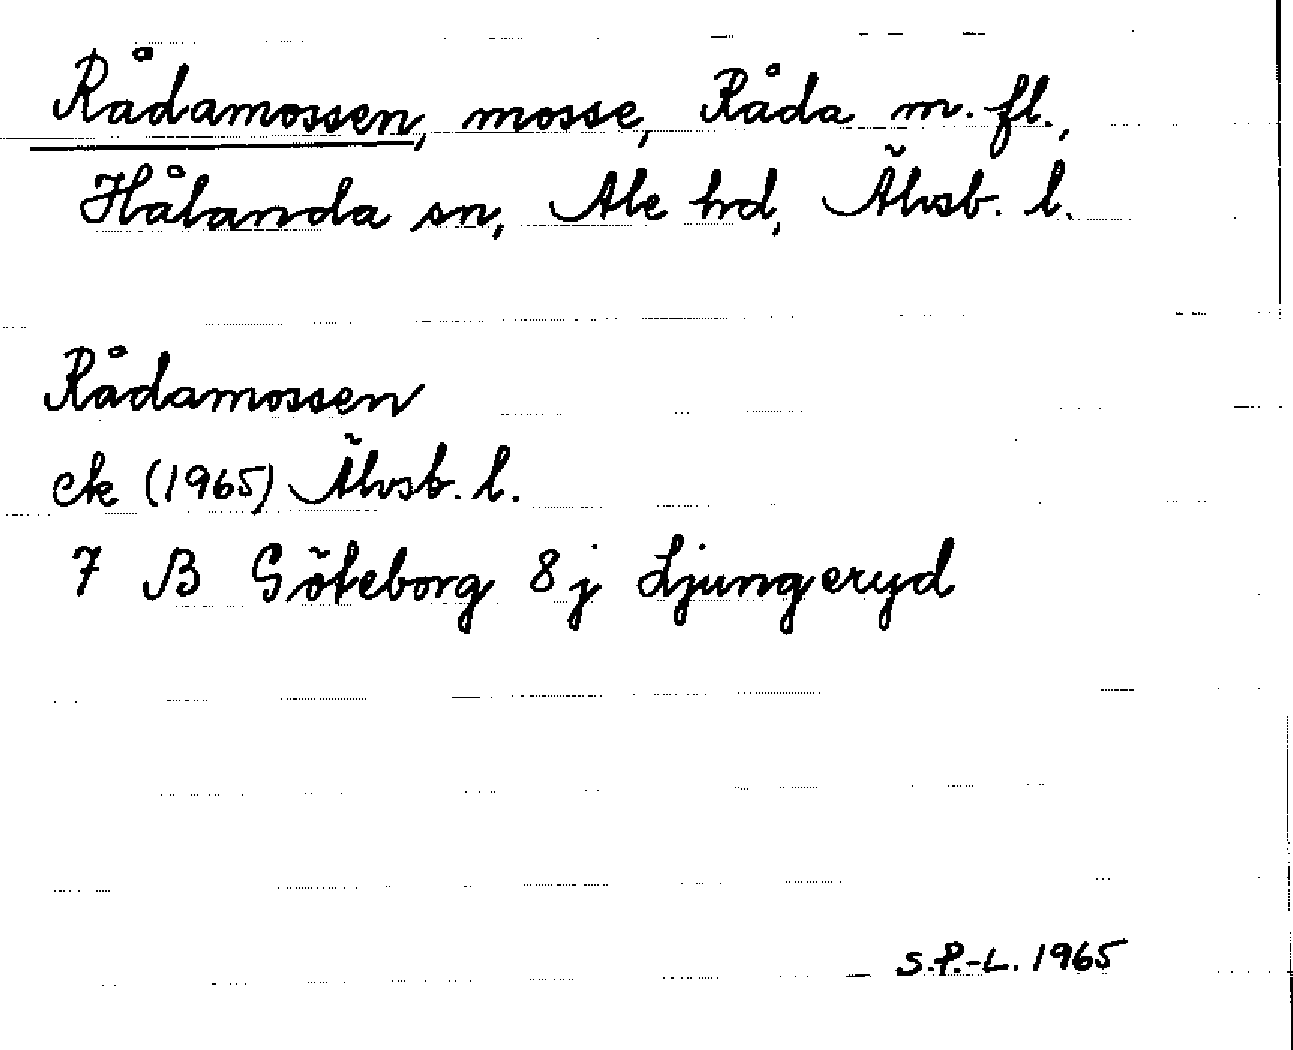 Rådamossen, mosse, Råda m. fl.,
Hålanda sn, Ale hd, Älvsb. l.
Rådamossen
ek (1965) Älvsb. l.
7 B Göteborg 8 j Ljungeryd
S.P.-L. 1965